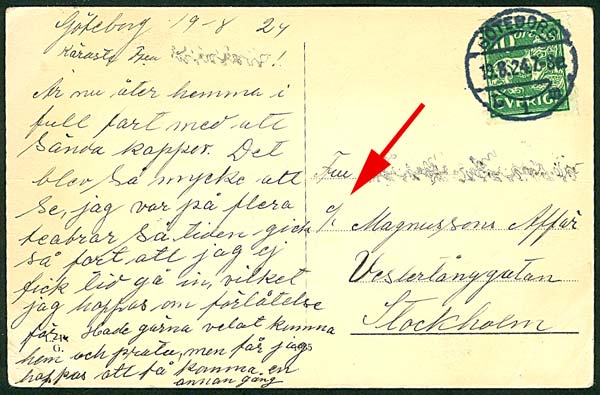 Göteborg 19-8 24
Käraste Fru !
Är nu åter hemma i
full fart med att
sända kappor. Det
blev så mycke att
se, jag var på flera
teatrar så tiden gick
så fort att jag ej
fick tid gå in, vilket
jag hoppas om förlåtelse
för. Hade gärna velat komma
hem och prata, men får jag
hoppas att få komma en
annan gång
GÖTEBORG
24
SVERIGE
Fru
c/o Magnussons Affär
Vesterlånggatan
Stockholm